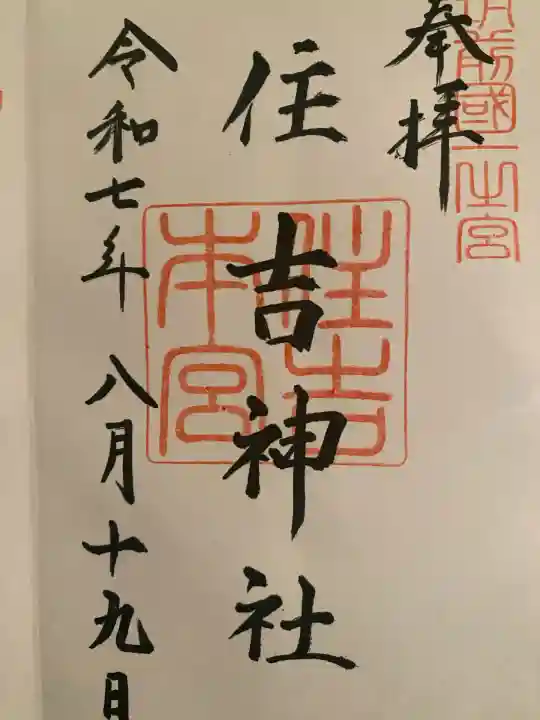 筑前國一之宮
奉拝
住吉神社
住吉
本宮
令和七年八月十九日